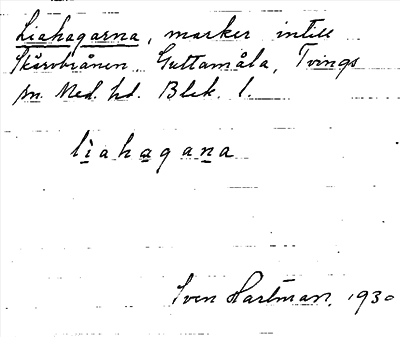 Liahagarna, marker intill
Skärvbiånen Guttamåla, Tvings
sn. Med. hd. Blek. l.
liahagana
Sven Hartman, 1930